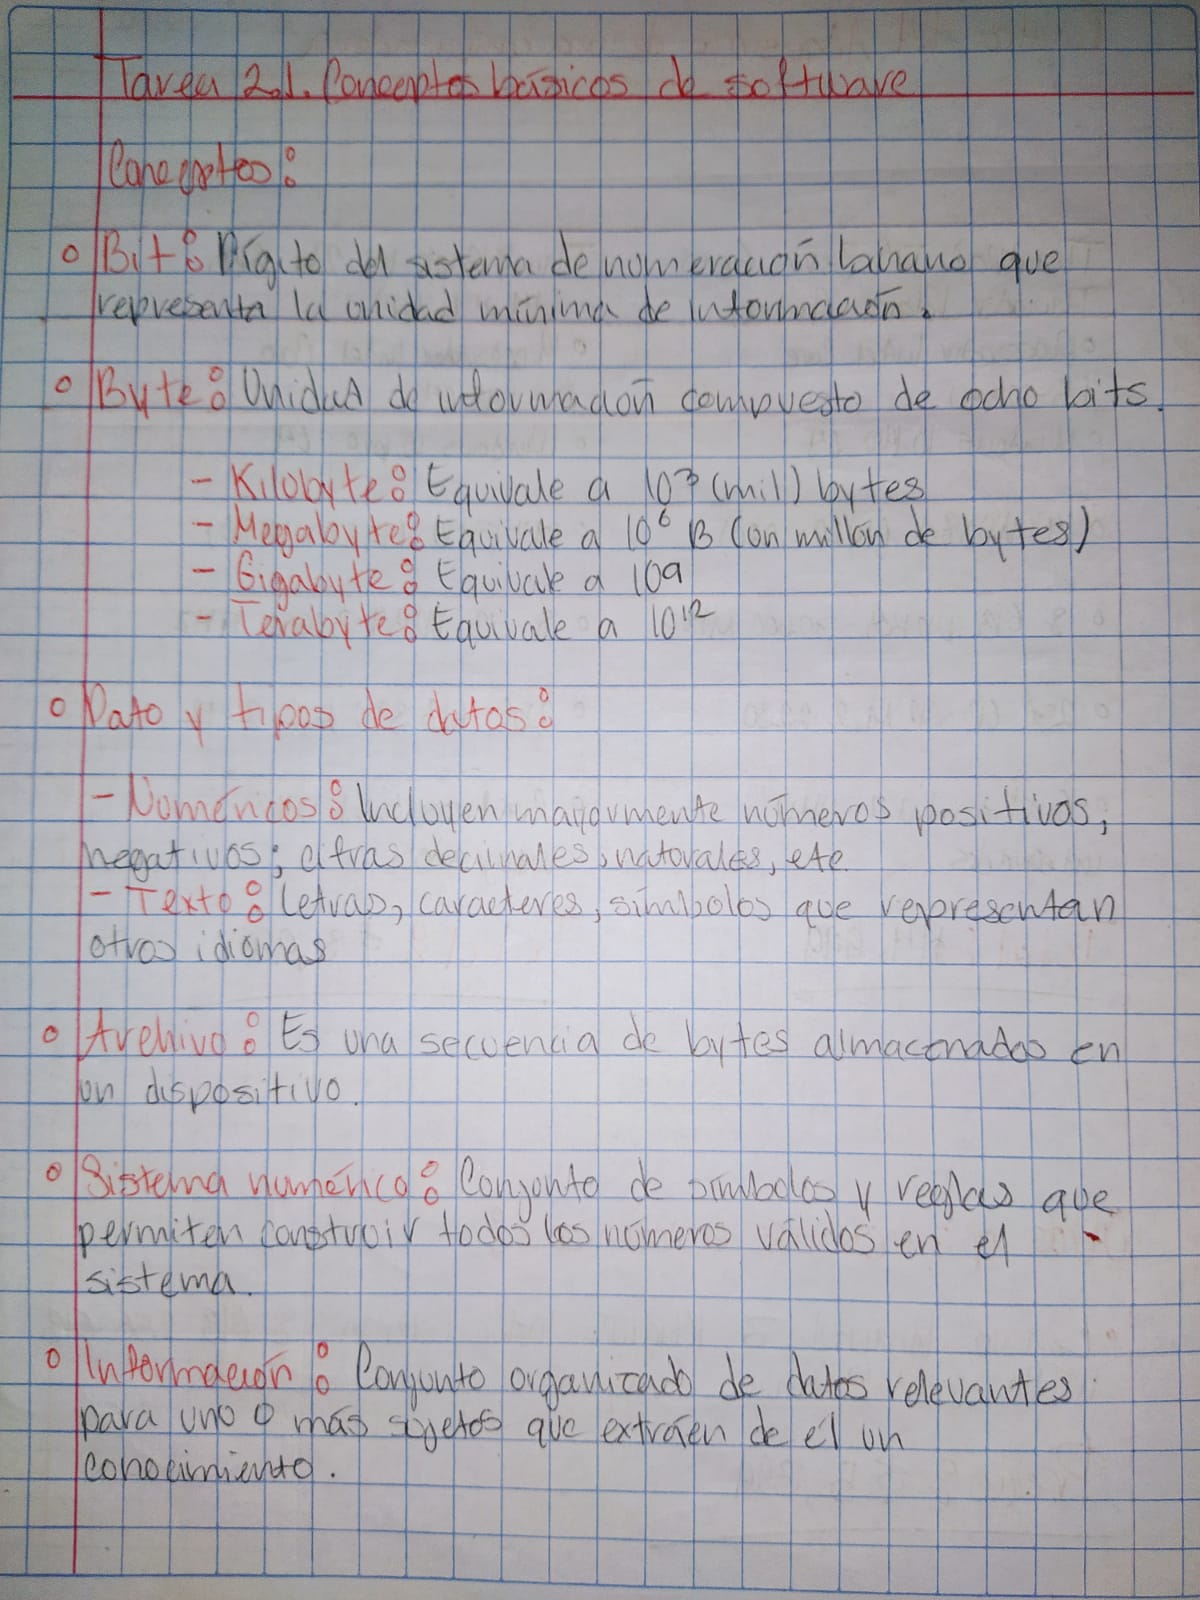 Tarea 2.1. Conceptos básicos de software
Conceptos:
Bit: Dígito del sistema de numeración binario que
representa la unidad mínima de información.
Byte: Unidad de información compuesto de ocho bits.
- Kilobyte: Equivale a 10³ (mil) bytes
- Megabyte: Equivale a 10⁶ B (un millón de bytes)
- Gigabyte: Equivale a 109
- Terabyte: Equivale a 10¹²
Dato y tipos de datos:
- Numéricos: Incluyen mayormente números positivos,
negativos; cifras decimales, naturales, etc.
- Texto: Letras, caracteres, símbolos que representan
otros idiomas
Archivo: Es una secuencia de bytes almacenados en
un dispositivo.
Sistema numérico: Conjunto de símbolos y reglas que
permiten construir todos los números válidos en el
sistema.
Información: Conjunto organizado de datos relevantes
para uno o más sujetos que extraen de él un
conocimiento.